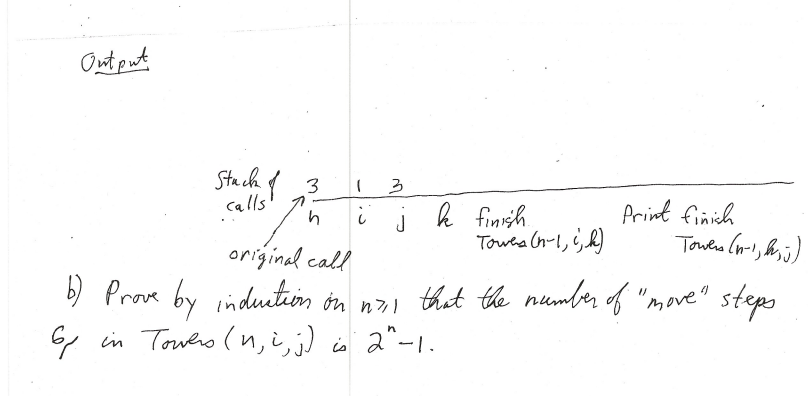 Output
Stack of calls 3 1 3
n i j k finish Towers(n-1, i, k) Print finish Towers(n-1, k, j)
original call
b) Prove by induction on n≥1 that the number of "move" steps
6p in Towers(n, i, j) is 2ⁿ-1.